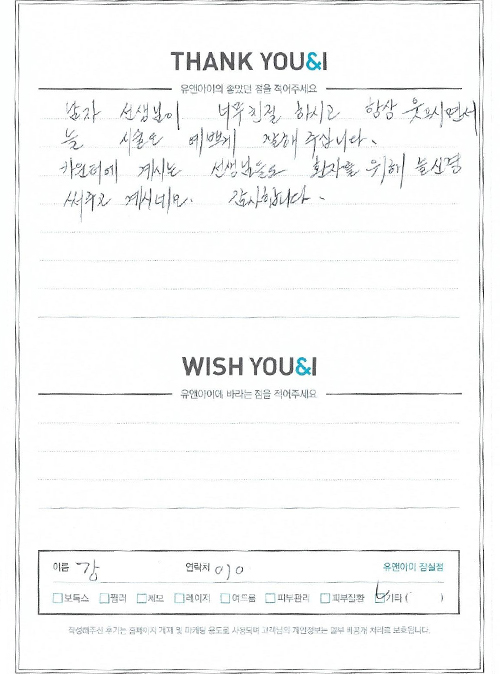 THANK YOU&I
유앤아이의 좋았던 점을 적어주세요
남자 선생님이 너무 친절 하시고 항상 웃으시면서
늘 시술도 예쁘게 잘해 주십니다.
카운터에 계시는 선생님들도 환자를 위해 늘 신경
써주고 계시네요. 감사합니다.
WISH YOU&I
유앤아이에 바라는 점을 적어주세요
이름 강 연락처 010 유앤아이 잠실점
보톡스 필러 제모 레이저 여드름 피부관리 피부질환 기타 ( )
작성해주신 후기는 홈페이지 게재 및 마케팅 용도로 사용되며 고객님의 개인정보는 일부 비공개 처리로 보호됩니다.